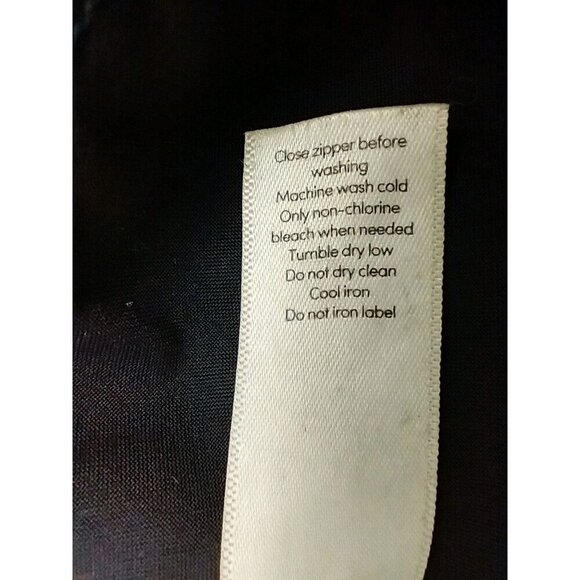 Close zipper before
washing
Machine wash cold
Only non-chlorine
bleach when needed
Tumble dry low
Do not dry clean
Cool iron
Do not iron label